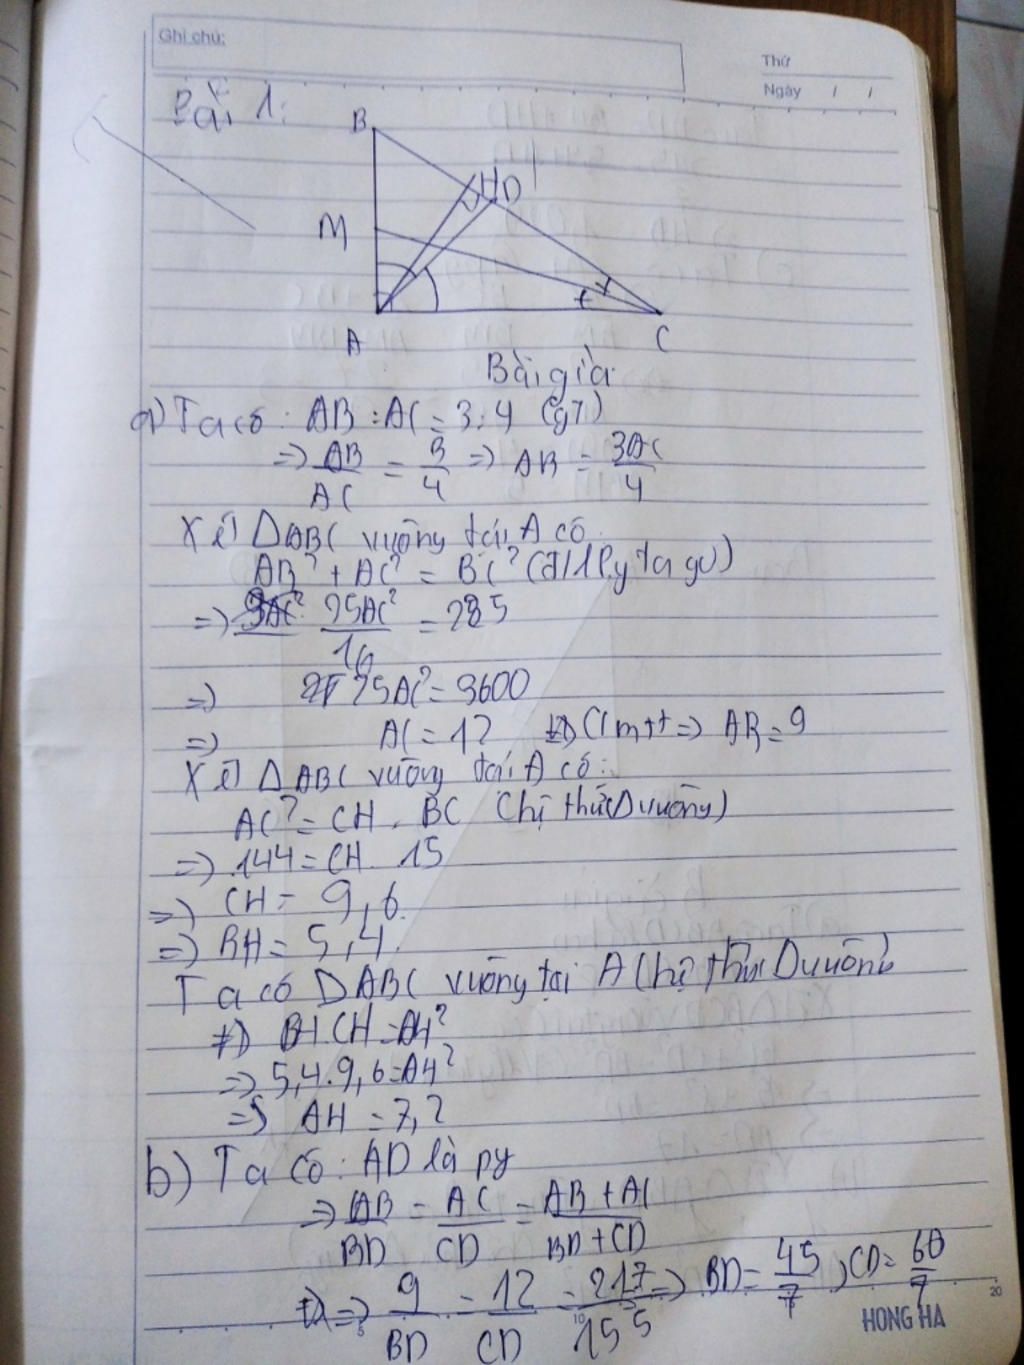 Ghi chú:
Thứ
Ngày / /
Bài 1:
B
H D
M
A
C
Bài giả
a) Ta có: AB : AC = 3:4 (gt)
=> AB/AC = 3/4 => AB = 3AC/4
Xét ΔABC vuông tại A có:
AB² + AC² = BC² (đ/l Pytago)
=> 25AC²/16 = 225
=> 25AC² = 3600
=> AC = 12 Cmtt => AB = 9
Xét ΔABC vuông tại A có:
AC² = CH . BC (hệ thức Δ vuông)
=> 144 = CH . 15
=> CH = 9,6.
=> BH = 5,4.
Ta có ΔABC vuông tại A (hệ thức Δ vuông
=> BH.CH = AH²
=> 5,4.9,6 = AH²
=> AH = 7,2
b) Ta có: AD là pg
=> AB/BD = AC/CD = AB + AC/BD + CD
=> 9/BD = 12/CD = 21 7/15 5 => BD = 45/7, CD = 60/7
5
10
20
HONG HA